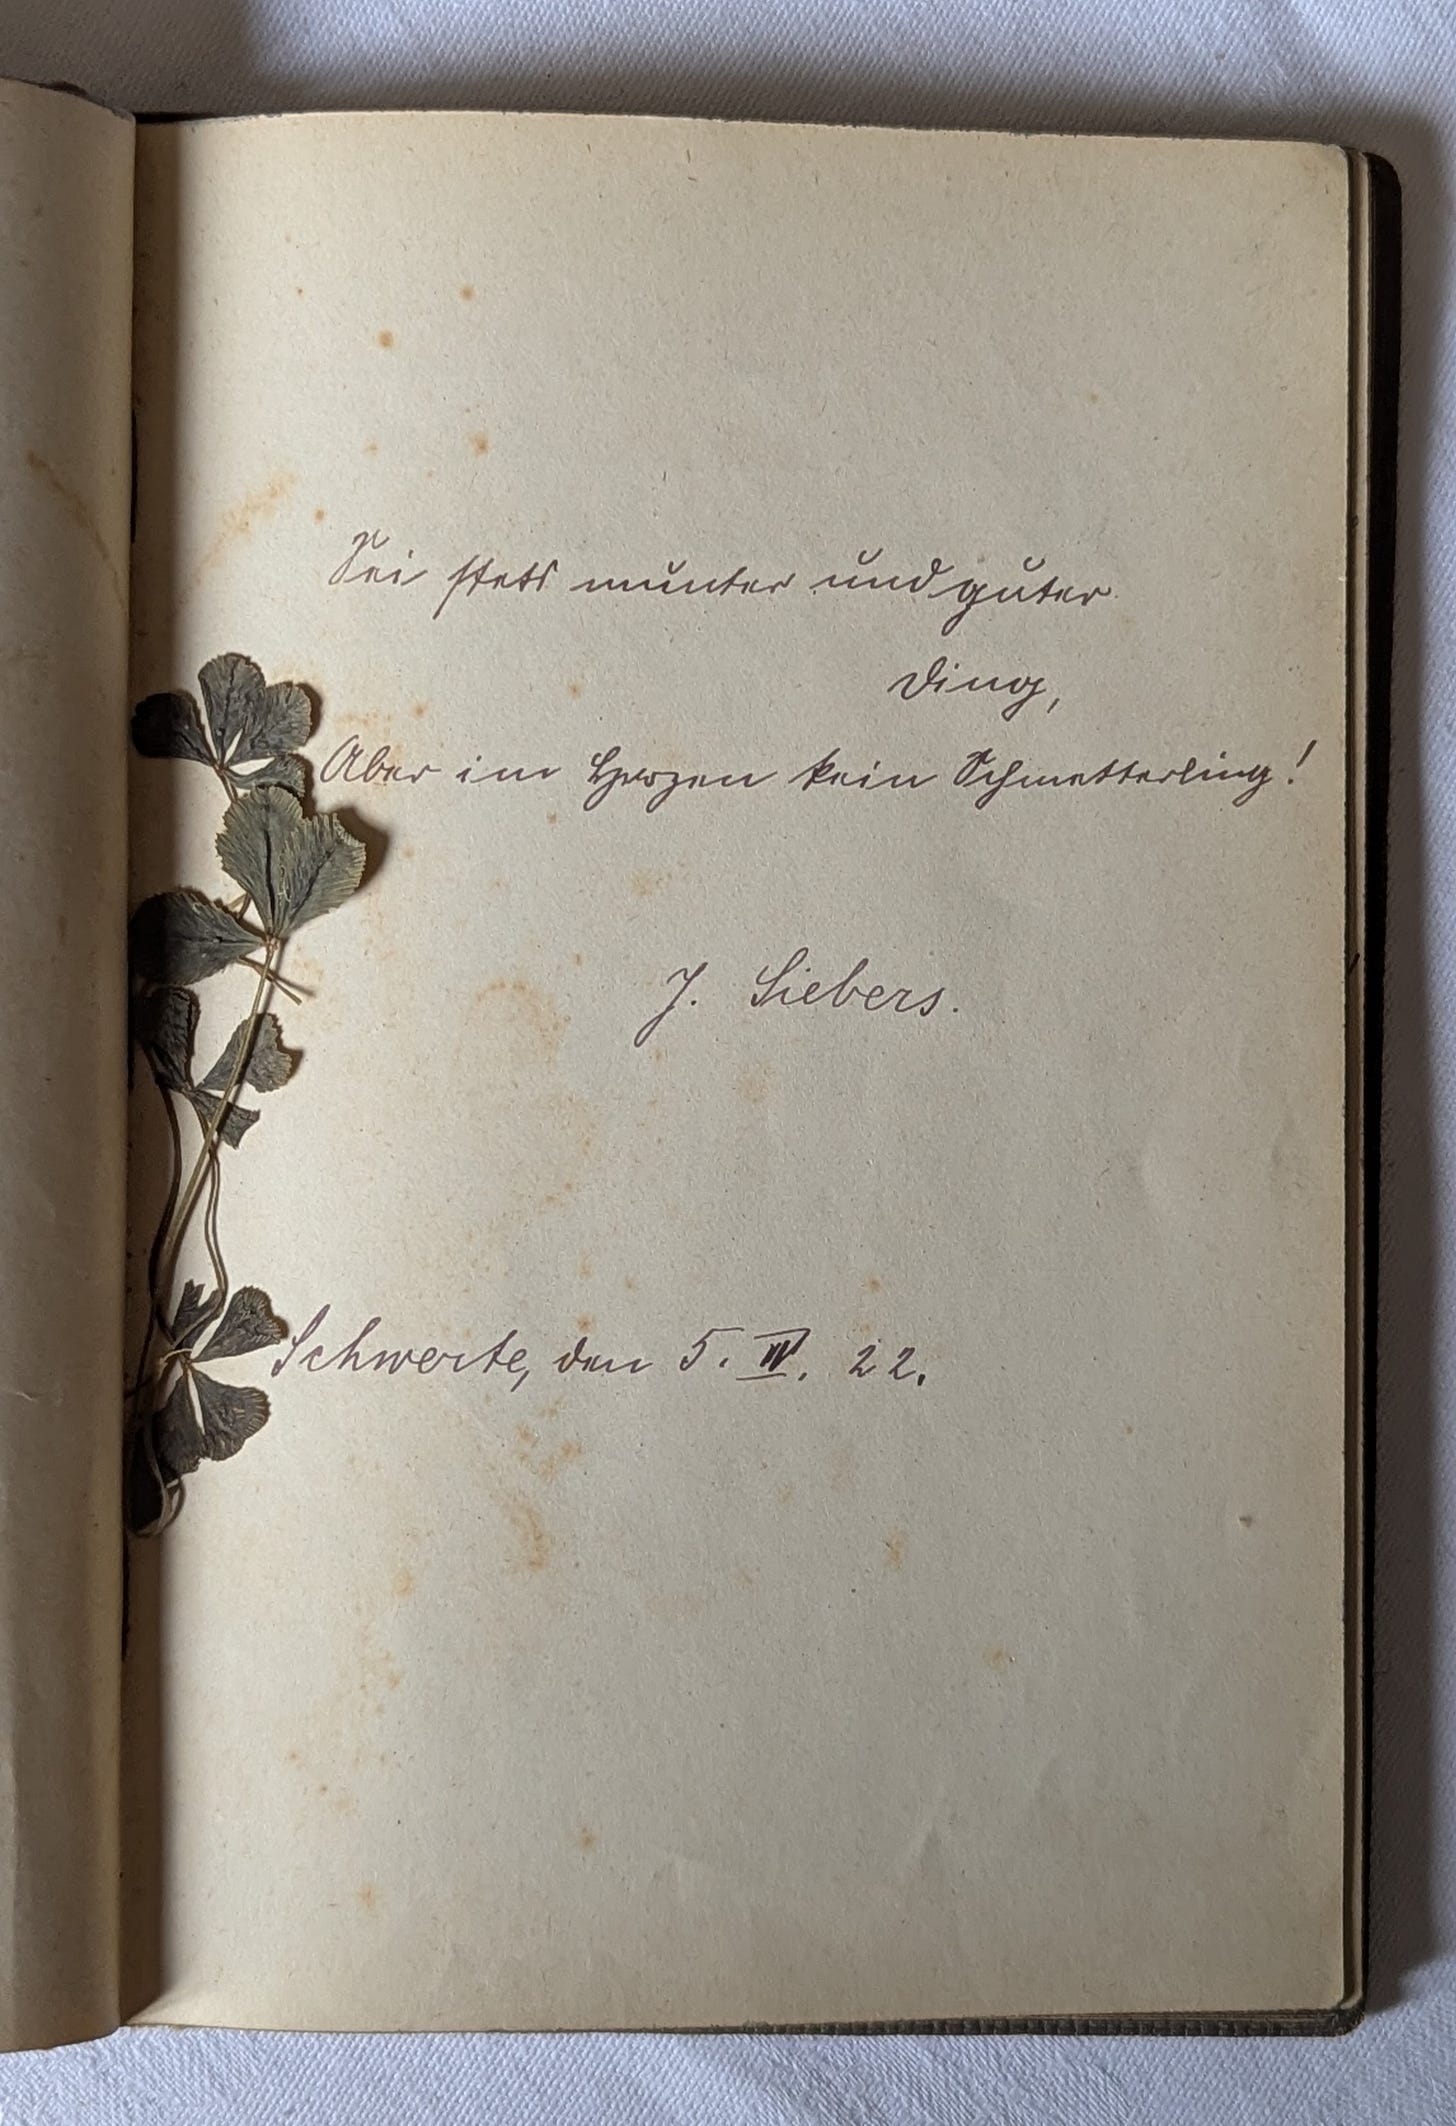 Sei stets munter und guter
Ding,
Aber im Herzen kein Schmetterling!
J. Siebers.
Schwerte, den 5. IV. 22.